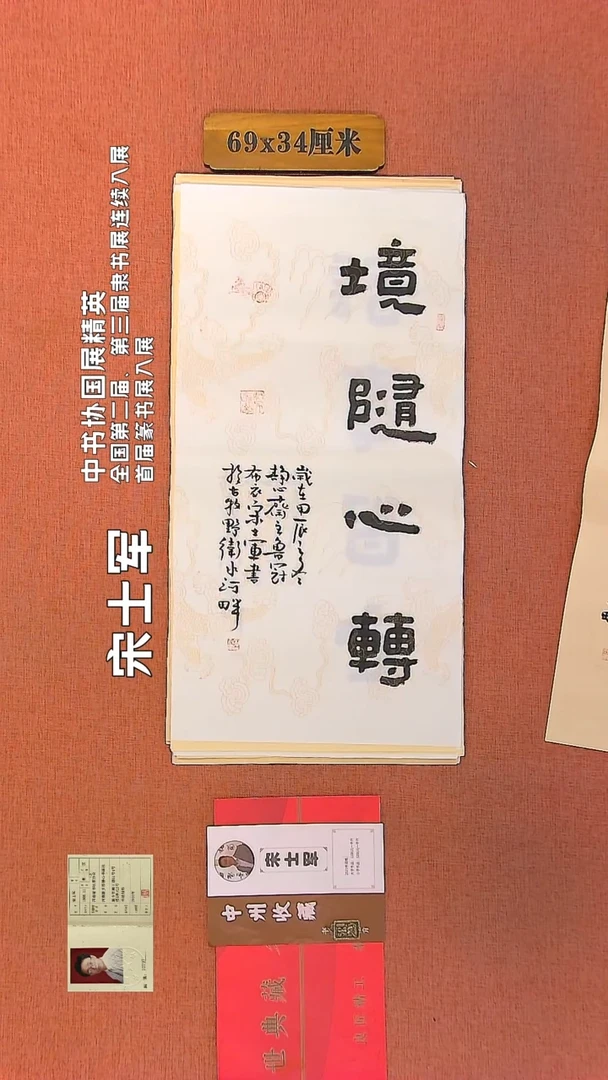 69x34厘米
境隨心轉
歲在甲辰之冬
静心齋主魯冠
布衣宋士軍書
於古牧野衛水河畔
中书协国展精英
全国第二届、第三届隶书展连续入展
首届篆书展入展
宋士军
宋士军
中州收藏
世典藏